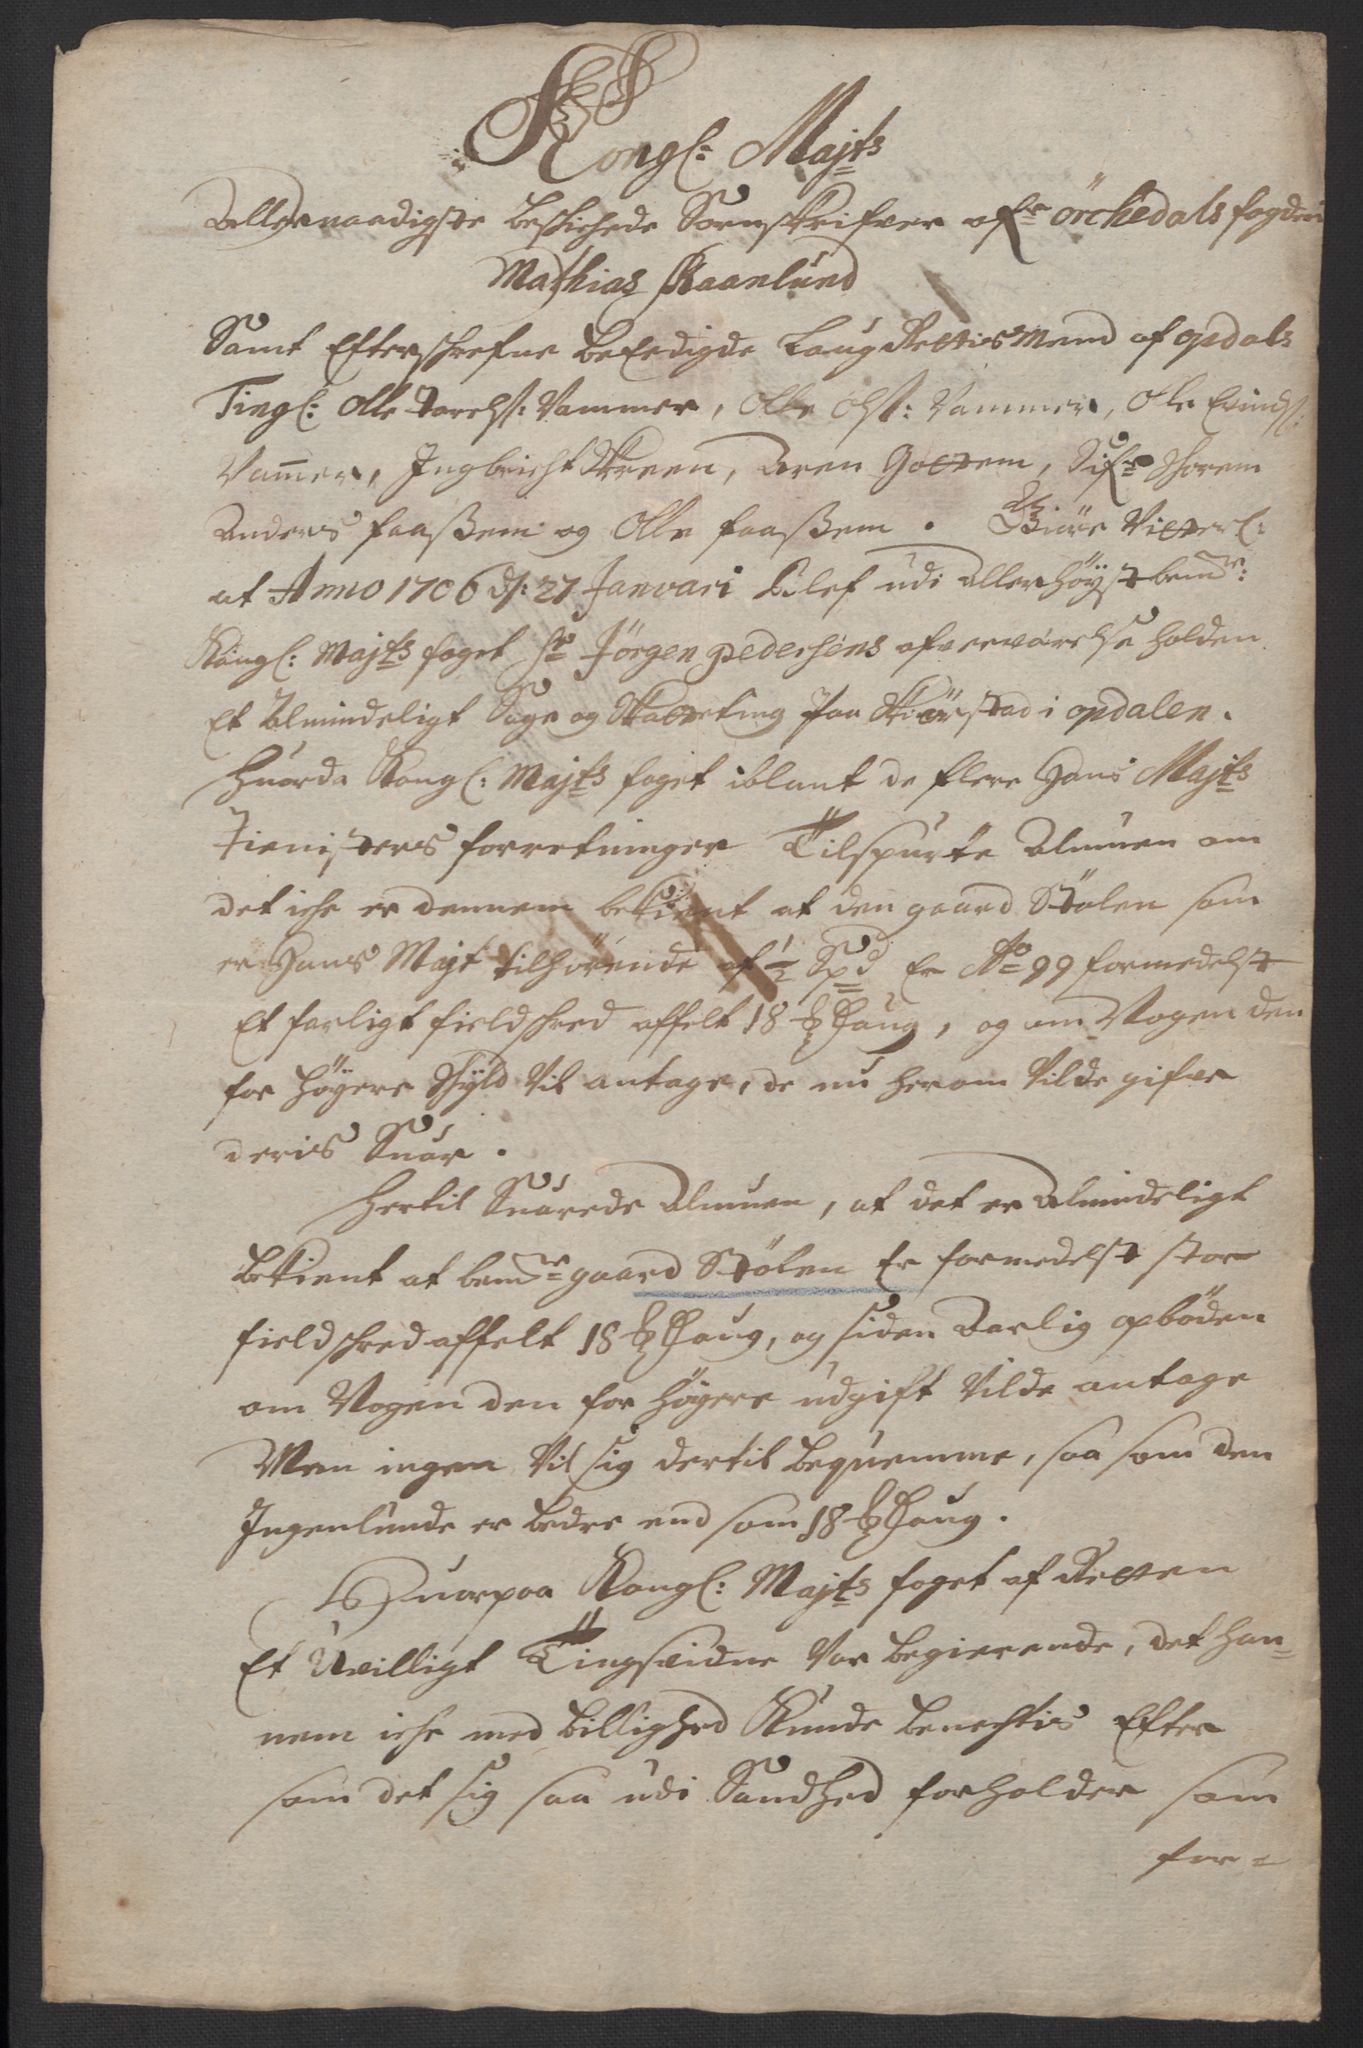 Kongl: Majts
Allernaadigste beskichede Sornskrifver ofr Örchedals fogderi
Mathias Raanlund
Samt Efterschrefne beEedigde Laug Rettis Mend af opdals
Tingl: Olle Torchs: Vammer, Olle Ols: Vammer, Olle Einds:
Vam̄er, Ingbricht Skreen, Aren Gottem, Sifr Thorem
Anders faaßem og Olle faaßem. Giöre Vitterl:
at Anno 1706 ds: 27 Janvari blef udi Allerhöystbemte:
Kongl: Majts foget Sr Jörgen Pedersens ofverværelse holden
Et Almindeligt Sage og Skatteting paa Skiörstad i opdalen.
Huorda Kongl: Majts foget iblant de flere Hans Majts
Tienisters forretninger Tilspurte Almuen om
det iche er dennem bekient at den gaard Stölen som
er Hans Majt tilhörende af 1/2 Spd Er Ao 99 formedelst
Et farligt fieldschred affelt 18 ℔ Laug, og om Nogen den
for höyere Skyld Vil antage, de nu herom Vilde gifve
deris Suar.
Hertil Suarede Almuen, at det er Almindeligt
bekient at bemte gaard Stölen Er formedelst stor
fieldschred affelt 18 ℔ Laug, og siden Aarlig opböden
om Nogen den for höyere udgift Vilde antage
Men ingen Vil sig dertil beqvemme, saa som den
Ingenlunde er bedre end som 18 ℔ Laug.
Huorpaa Kongl: Majts foget af Retten
Et Uvilligt Tingsvidne Var begierende, det han=
nem iche med billighed Kunde benechtis Efter
som det sig saa udi Sandhed forholder som
for=